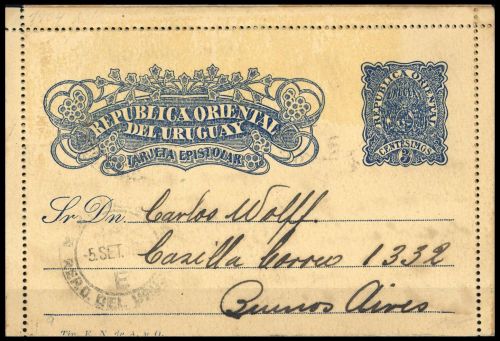 REPUBLICA ORIENTAL
DEL URUGUAY
TARJETA EPISTOLAR
REPUBLICA ORIENTAL
3
CENTESIMOS
Sr Dn Carlos Wolff
Casilla Correo 1332
Buenos Aires
5.SET.
E
DEL
Tip. E. N. de A. y O.